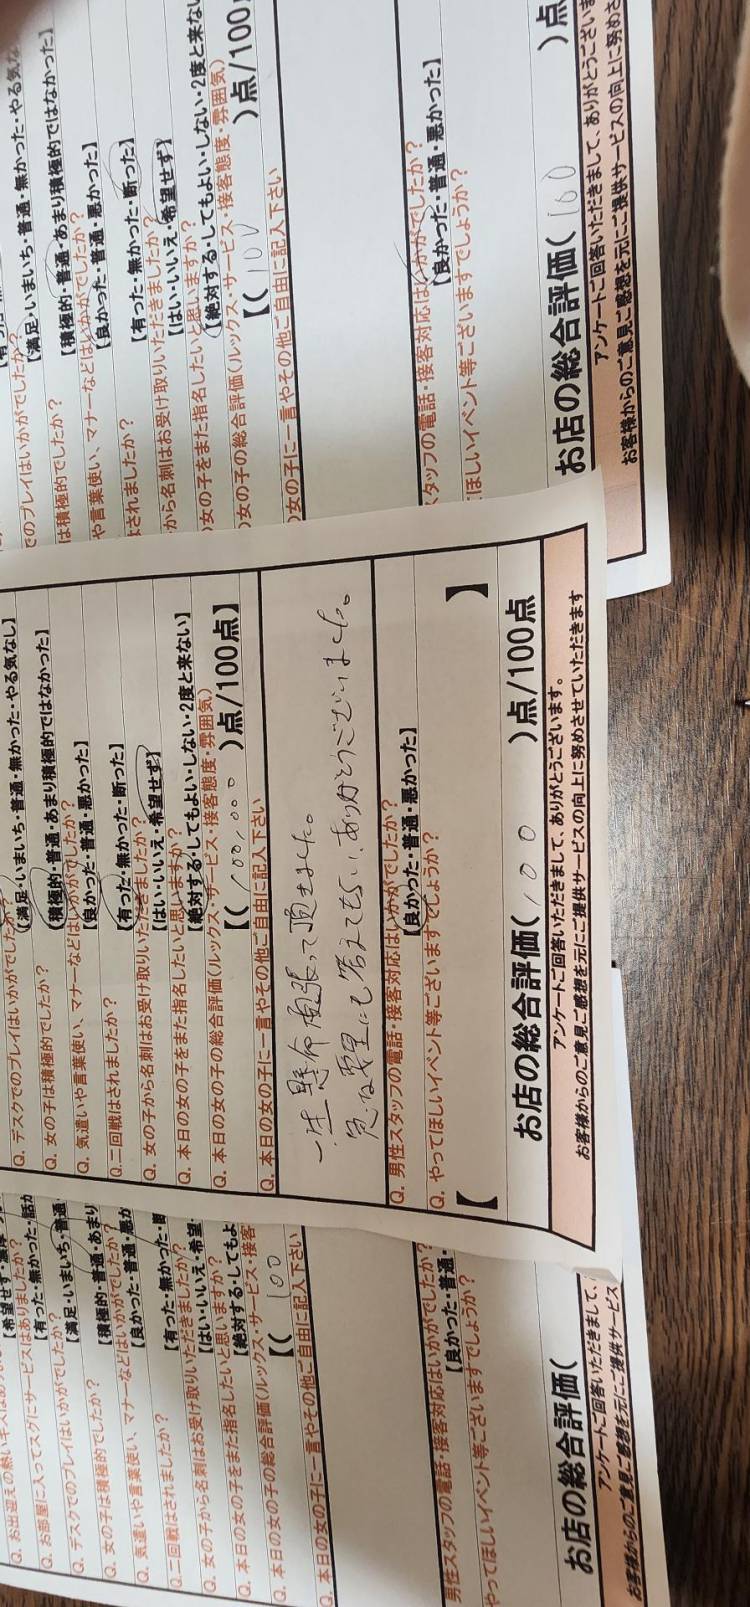 Q. デスクでのプレイはいかがでしたか?
【満足・いまいち・普通・無かった・やる気なし】
Q. 女の子は積極的でしたか?
【積極的・普通・あまり積極的ではなかった】
Q. 気遣いや言葉使い、マナーなどはいかがでしたか?
【良かった・普通・悪かった】
Q.二回戦はされましたか?
【有った・無かった・断った】
Q. 女の子から名刺はお受け取りいただきましたか?
【はい・いいえ・希望せず】
Q. 本日の女の子をまた指名したいと思いますか?
【絶対する・してもよい・しない・2度と来ない】
Q. 本日の女の子の総合評価(ルックス・サービス・接客態度・雰囲気)
【( 100,000 )点/100点】
Q. 本日の女の子に一言やその他ご自由に記入下さい
一生懸命頑張って頂きました。
急な要望にも答えてもらい、ありがとうございました。
Q. 男性スタッフの電話・接客対応はいかがでしたか?
【良かった・普通・悪かった】
Q. やってほしいイベント等ございますでしょうか?
【 】
お店の総合評価( 100 )点/100点
アンケートご回答いただきまして、ありがとうございます。
お客様からのご意見ご感想を元にご提供サービスの向上に努めさせていただきます
でのプレイはいかがでしたか?
【満足・いまいち・普通・無かった・やる気な
は積極的でしたか?
【積極的・普通・あまり積極的ではなかった】
や言葉使い、マナーなどはいかがでしたか?
【良かった・普通・悪かった】
はされましたか?
【有った・無かった・断った】
から名刺はお受け取りいただきましたか?
【はい・いいえ・希望せず】
女の子をまた指名したいと思いますか?
【絶対する・してもよい・しない・2度と来ない
女の子の総合評価(ルックス・サービス・接客態度・雰囲気)
【( 100 )点/100点
女の子に一言やその他ご自由に記入下さい
タッフの電話・接客対応はいかがでしたか?
【良かった・普通・悪かった】
てほしいイベント等ございますでしょうか?
お店の総合評価( 100 )点
アンケートご回答いただきまして、ありがとうございま
お客様からのご意見ご感想を元にご提供サービスの向上に努めさ
Q. お出迎えの熱いキスは
【希望せず・
Q. お部屋に入ってスグにサービスはありましたか?
【有った・無かった・話が
Q. デスクでのプレイはいかがでしたか?
【満足・いまいち・普通
Q. 女の子は積極的でしたか?
【積極的・普通・あまり
Q. 気遣いや言葉使い、マナーなどはいかがでしたか?
【良かった・普通・悪か
Q.二回戦はされましたか?
【有った・無かった・断
Q. 女の子から名刺はお受け取りいただきましたか?
【はい・いいえ・希望
Q. 本日の女の子をまた指名したいと思いますか?
【絶対する・してもよ
Q. 本日の女の子の総合評価(ルックス・サービス・接客
【( 100
Q. 本日の女の子に一言やその他ご自由に記入下さい
男性スタッフの電話・接客対応はいかがでしたか?
【良かった・普通・
やってほしいイベント等ございますでしょうか?
お店の総合評価(
アンケートご回答いただきまして、
お客様からのご意見ご感想を元にご提供サービス